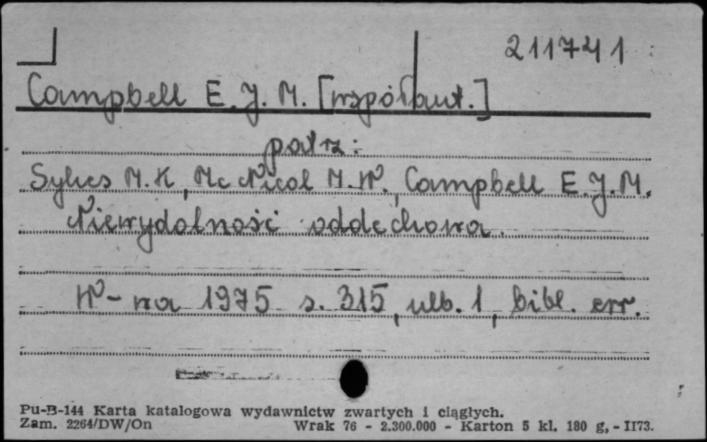 211741
Campbell E. J. M. [współaut.]
patrz:
Sykes M. K., Mc Nicol M. W., Campbell E. J. M.
Niewydolność oddechowa.
W-wa 1975 s. 315, ulb. 1, bibl. err.
Pu-B-144 Karta katalogowa wydawnictw zwartych i ciągłych.
Zam. 2264/DW/On Wrak 76 - 2.300.000 - Karton 5 kl. 180 g, - II73.